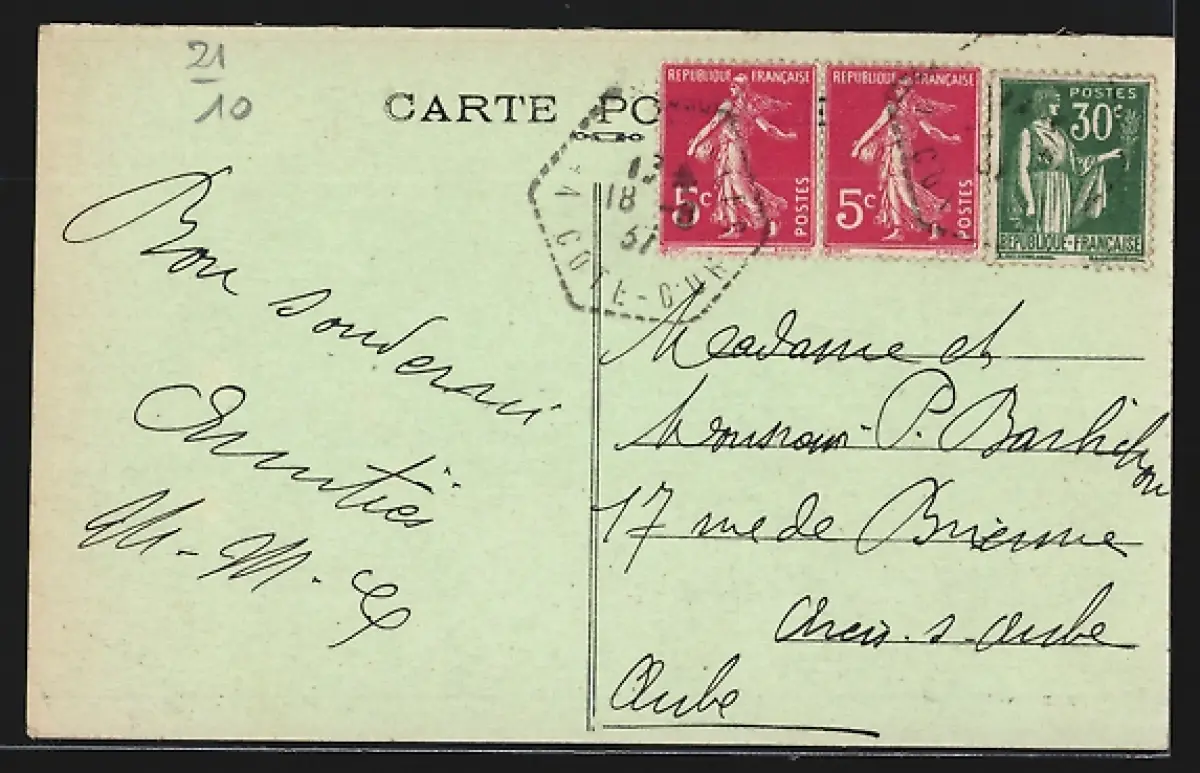 21
10
CARTE PO
REPUBLIQUE FRANÇAISE
5c
POSTES
REPUBLIQUE FRANÇAISE
5c
POSTES
POSTES
30c
REPUBLIQUE-FRANÇAISE
13
18
CÔTE-D'OR
Bon souvenir
Amitiés
M-M.
Madame et
Monsieur P. Barbichon
17 rue de Brienne
Arcis-s-Aube
Aube